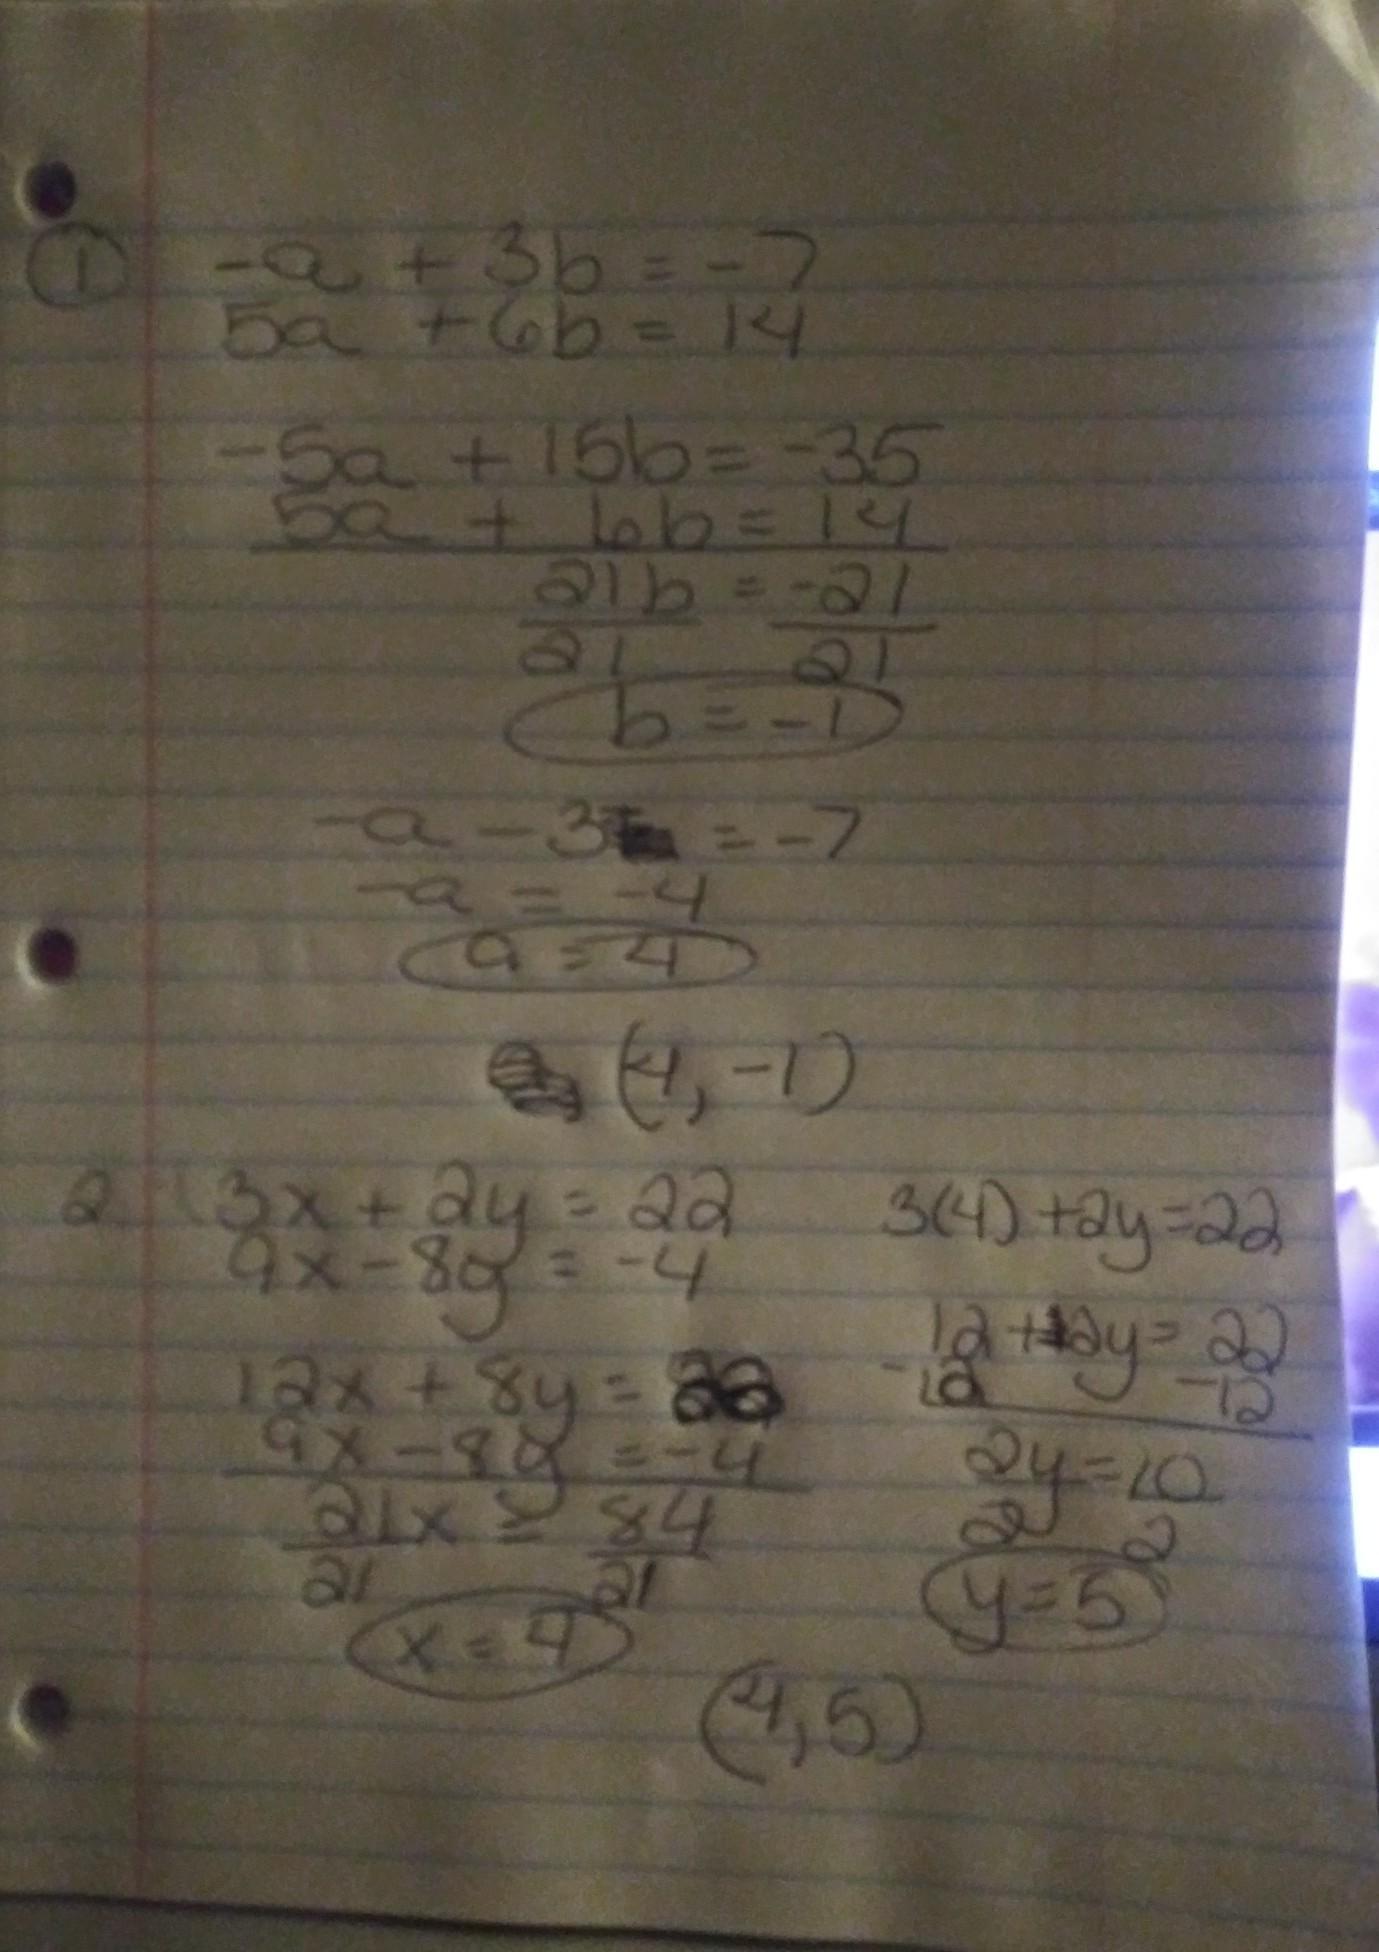 1
-a + 3b = -7
5a + 6b = 14
-5a + 15b = -35
5a + 6b = 14
21b = -21
21 21
b = -1
-a - 3 = -7
-a = -4
a = 4
(4, -1)
2
3x + 2y = 22
9x - 8y = -4
12x + 8y =
9x - 8y = -4
21x = 84
21 21
x = 4
3(4) + 2y = 22
12 + 2y = 22
-12 -12
2y = 10
2 2
y = 5
(4, 5)